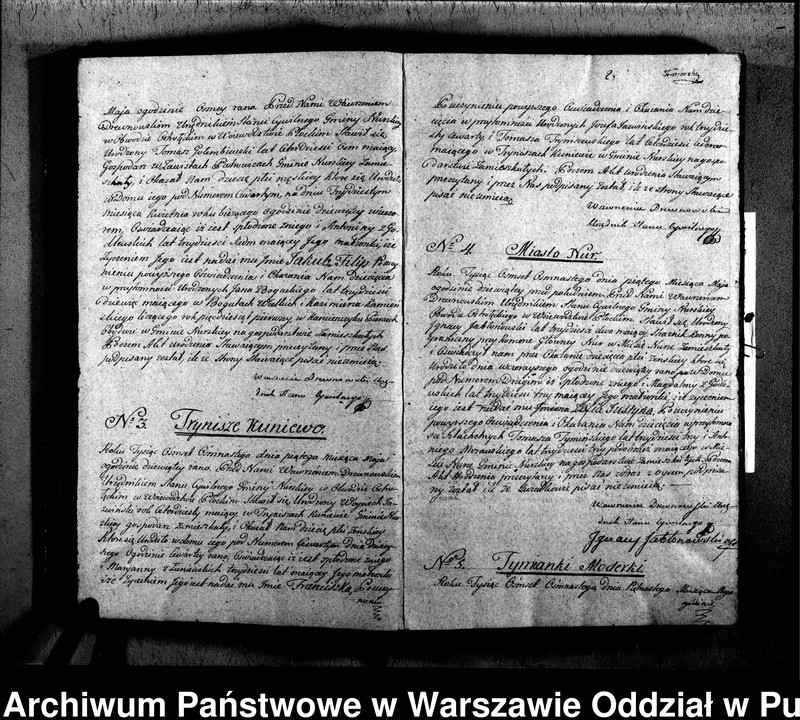 Maja ogodzinie ósmey rano Przed Nami Wawrzencem
Drewnowskim Urzędnikiem Stanu Cywilnego Gminy Nurskiey
w Obwodzie Ostrołęckim w Woiewodztwie Płockim Stawił się
Urodzony Tomasz Zołembiewski lat Czterdzieści maiący,
Gospodarz w Zawistach Piotrowcach Gminie Nurskiey Zamie-
szkały, i Okazał Nam dziecię płci męskiey które się Urodziło
w domu iego pod Numerem Czwartym, na dniu Trzydziestym
miesiąca Kwietnia roku bieżącego Ogodzinie dziewiątey wieczo-
rem, Oswiadczaiąc iż iest spłodzone z niego i Antoniny z Go-
dlewskich lat trzydzieści Siedm maiącey Jego małżonki, iż
Zyczeniem Jego iest nadać mu Imie Jakub Filip Po uczy-
nieniu powyższego Oświadczenia i Okazania Nam dziecięcia
w przytomności Urodzonych Jana Boguckiego lat trzydzieści
dziewięć maiącego w Bogutach Wielkich i Kazimierza Kamień
skiego liczącego rok pięćdziesiąt pierwszy w Kamieńczyku
Obydwu w Gminie Nurskiey na gospodarstwie Zamieszkałych
Poczem Akt urodzenia Stawaiącym przeczytany i przez Nas
podpisany został, ile że Strony Stawaiące pisać nieumieią
Wawrzeniec Drewnowski Urzę-
dnik Stanu Cywilnego
No 3. Trynisze Kuniewo.
Roku Tysiąc Ośmset Ośmnastego dnia piątego Miesiąca Maja
ogodzinie dziewiątey rano, Przed Nami Wawrzencem Drewnowskim
Urzędnikiem Stanu Cywilnego Gminy Nurskiey w Obwodzie Ostro-
łęckim w Woiewodztwie Płockim Stawił się Urodzony Woyciech Ja-
zwiński rok Czterdziesty maiący w Tryniszach Kuniewie Gminie Nur-
skiey gospodarz Zamieszkały, i Okazał Nam dziecię płci Zeńskiey
które się Urodziło w domu iego pod Numerem Czwartym dnia
Ogodzinie Czwartey rano, Oswiadczaiąc iż iest spłodzone z niego
i Maryanny z Zuńińskich trzydzieści lat maiącey Jego małżonki
iż Zyczeniem Jego iest nadać mu Imie Franciszka, Po uczy-
nieniu
2.
Po uczynieniu powyższego Oswiadczenia i Okazania Nam dzie-
cięcia w przytomności Urodzonych Józefa Jaźwińskiego rok trzydzie-
sty czwarty i Tomasza Tryniszewskiego lat Czterdzieści ieden
maiącego w Tryniszach Kuniewie, w Gminie Nurskiey na gospo-
darstwie Zamieszkałych. Poczem Akt Urodzenia Stawaiącym
przeczytany i przez Nas podpisany został, ile że Strony Stawaiące
pisać nieumieią
Wawrzeniec Drewnowski
Urzędnik Stanu Cywilnego
No 4. Miasto Nur.
Roku Tysiąc Ośmset Ośmnastego dnia piątego Miesiąca Maja
ogodzinie dziewiątey przed południem, Przed Nami Wawrzencem
Drewnowskim Urzędnikiem Stanu Cywilnego Gminy Nurskiey
Obwodu Ostrołęckiego w Woiewodztwie Płockim Stawił się Urodzony
Ignacy Jabłonowski lat trzydzieści dwa maiący, Strażnik Konny po-
graniczny przy Komorze Główney Nur w Mieście Nurze Zamieszkały
i Oswiadczył nam przy Okazaniu dziecięcia płci Zeńskiey które się
Urodziło dnia wczorayszego ogodzinie dziewiątey rano, w Domu
pod Numerem Drugim iż iest spłodzone z niego i Magdaleny z Godle-
wskich lat trzydzieści trzy maiącey Jego małżonki, iż zyczeniem
iego iest nadać mu Imiona Zofia Justyna, Po uczynieniu
powyższego Oswiadczenia i Okazania Nam dziecięcia w przytomno-
ści Szlachetnych Tomasza Tyminskiego lat trzydzieści trzy i Anto-
niego Morawskiego lat trzydzieści trzy podobnież maiącego w Mie-
ście Nurze Gminie Nurskiey na gospodarstwie Zamieszkałych. Poczem
Akt Urodzenia przeczytany i przez Nas wraz z Oycem podpisa-
ny został i ile że Świadkowie pisać nieumieią
Wawrzeniec Drewnowski Urzę-
dnik Stanu Cywilnego
Ignacy Jabłonowski
No 5. Tymianki Moderki.
Roku Tysiąc Ośmset Ośmnastego, dnia Piętnastego Miesiąca Maja
ogodzinie
Archiwum Państwowe w Warszawie Oddział w Pu